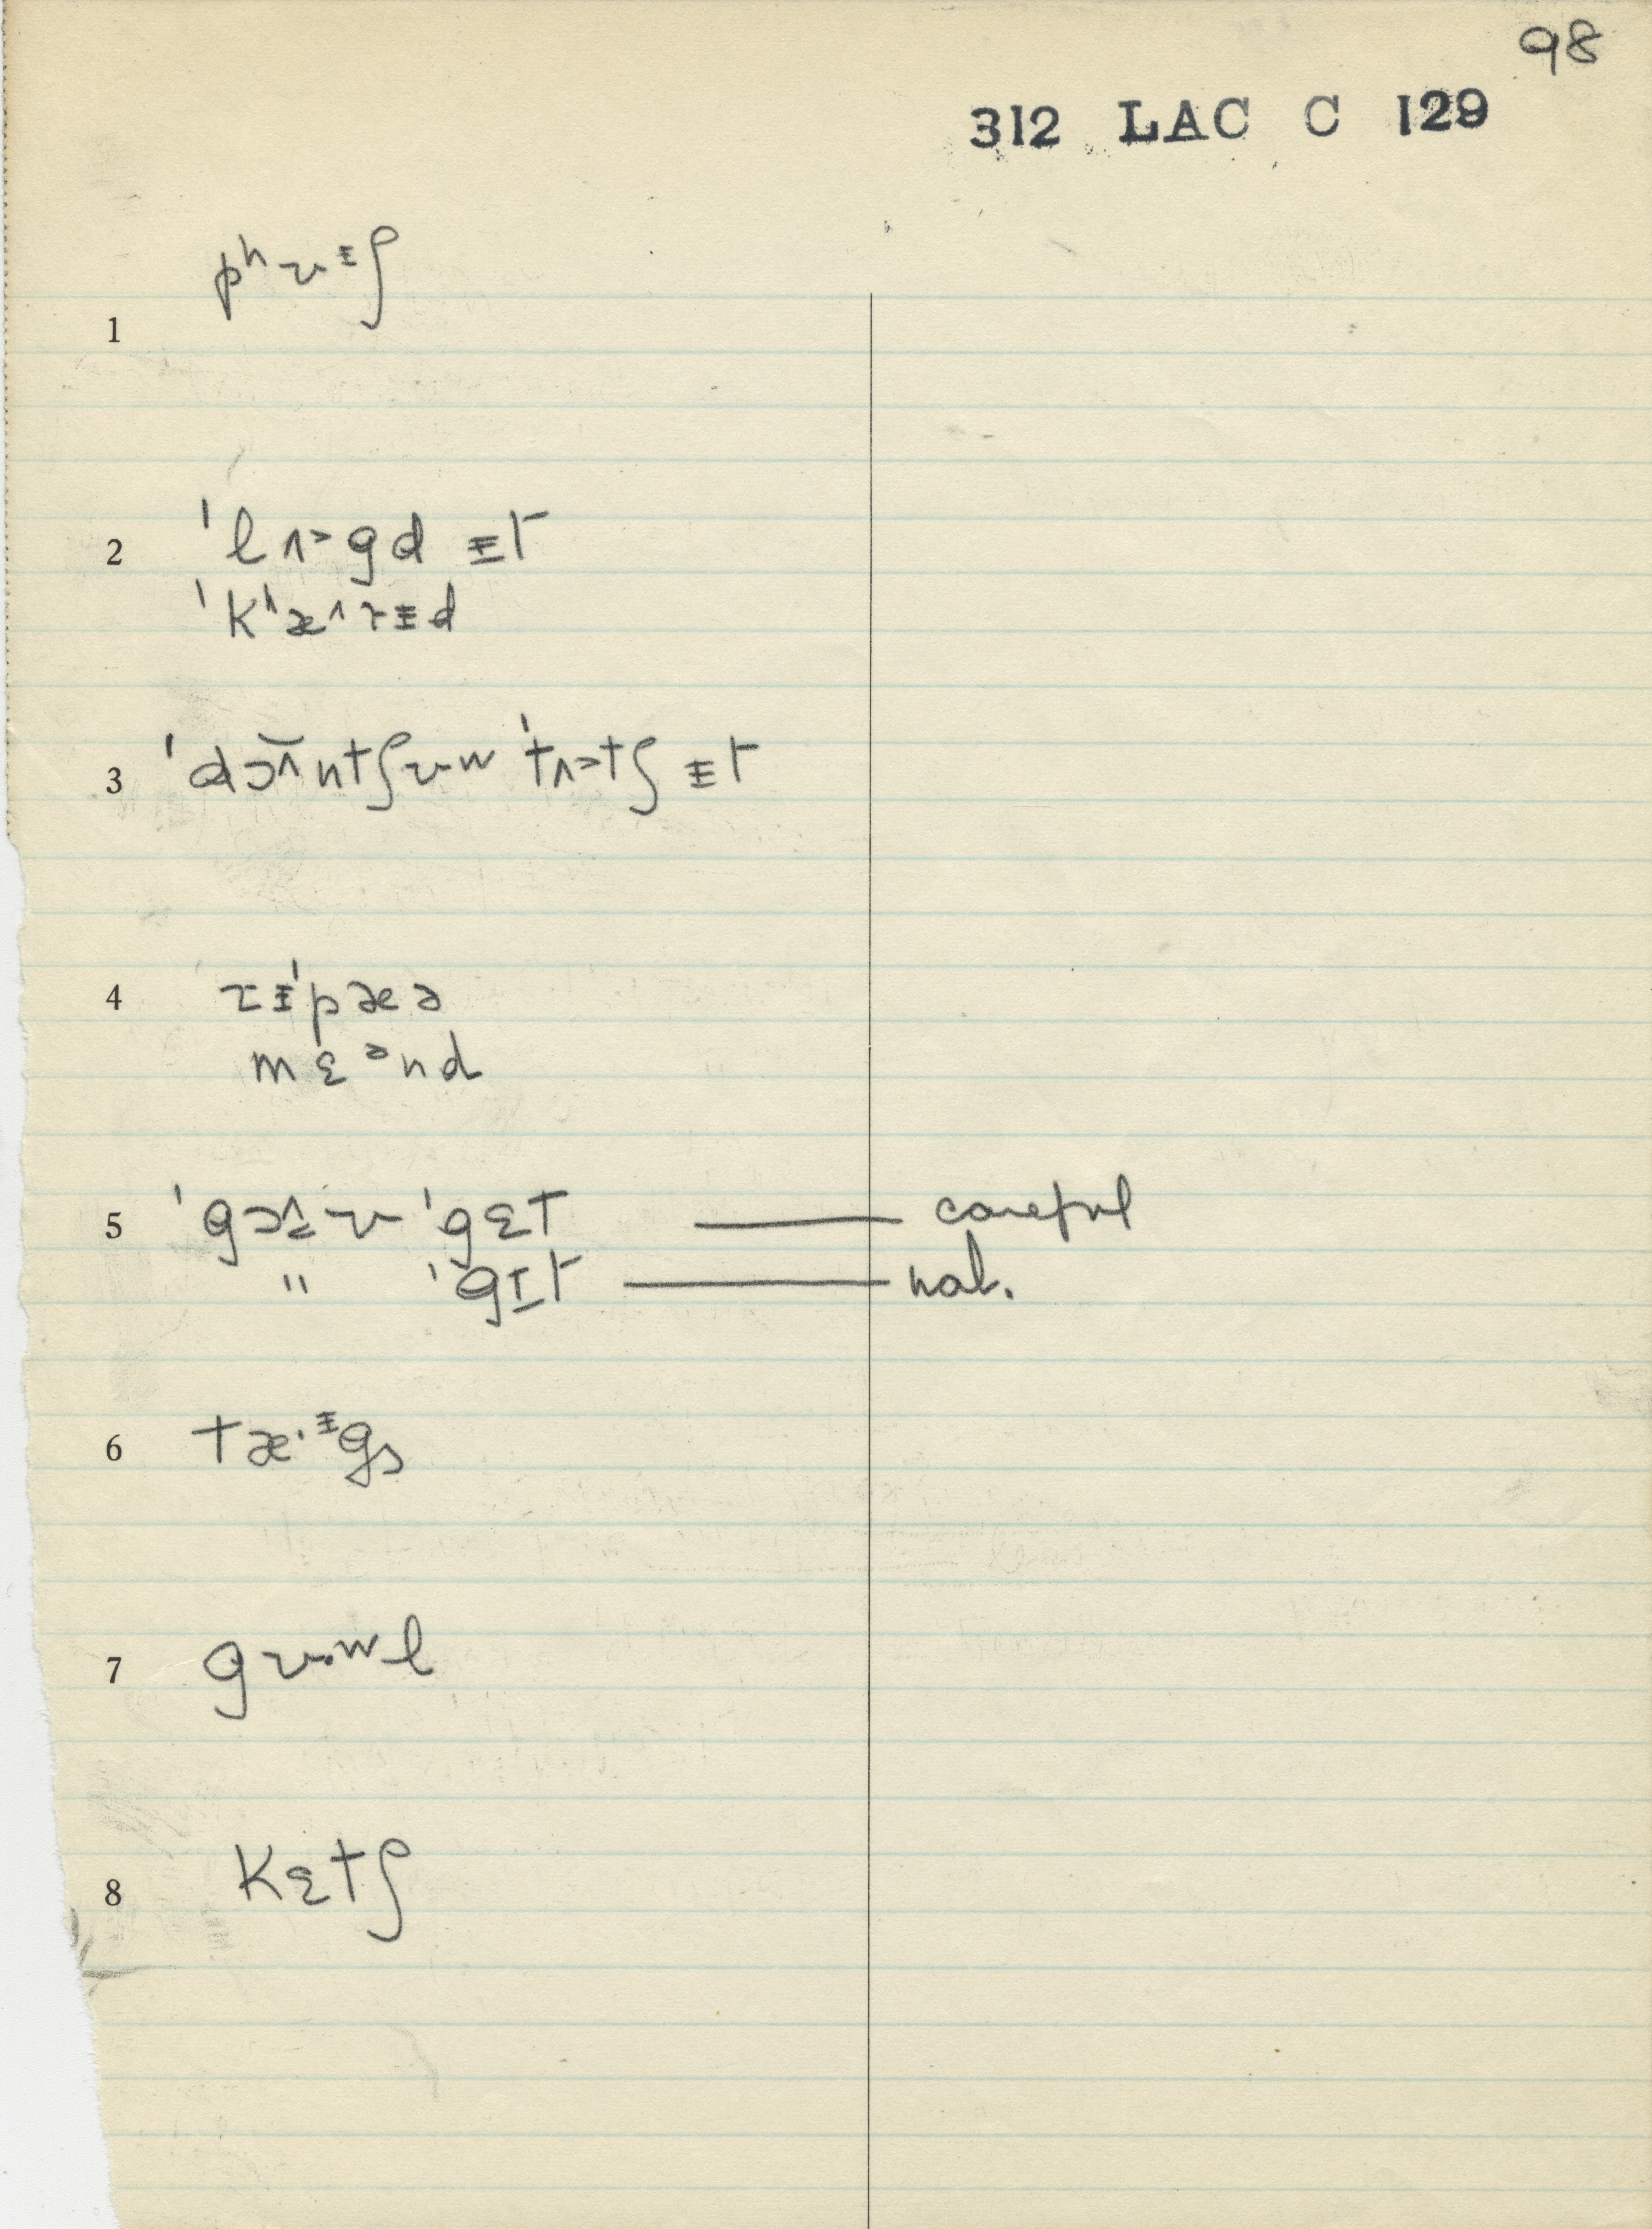 98
312 LAC C 129
1 pʰʊᵻʃ
2 ˈlʌ˃gd ᵻt
ˈkʰæ˄rᵻd
3 ˈdɔ̃˄ntʃʊʷ ˈtʌ˃tʃ ᵻt
4 rᵻˈpæə
mɛᵊnd
5 ˈgɔ˄ʊ ˈgɛt —— careful
" ˈgɪt —— nat.
6 tæ·ᵻgs
7 gʊ·ʷl
8 kɛtʃ